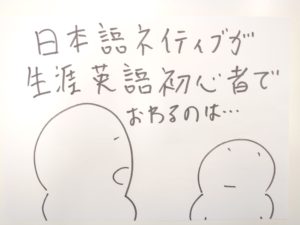 日本語ネイティブが
生涯英語初心者で
おわるのは…